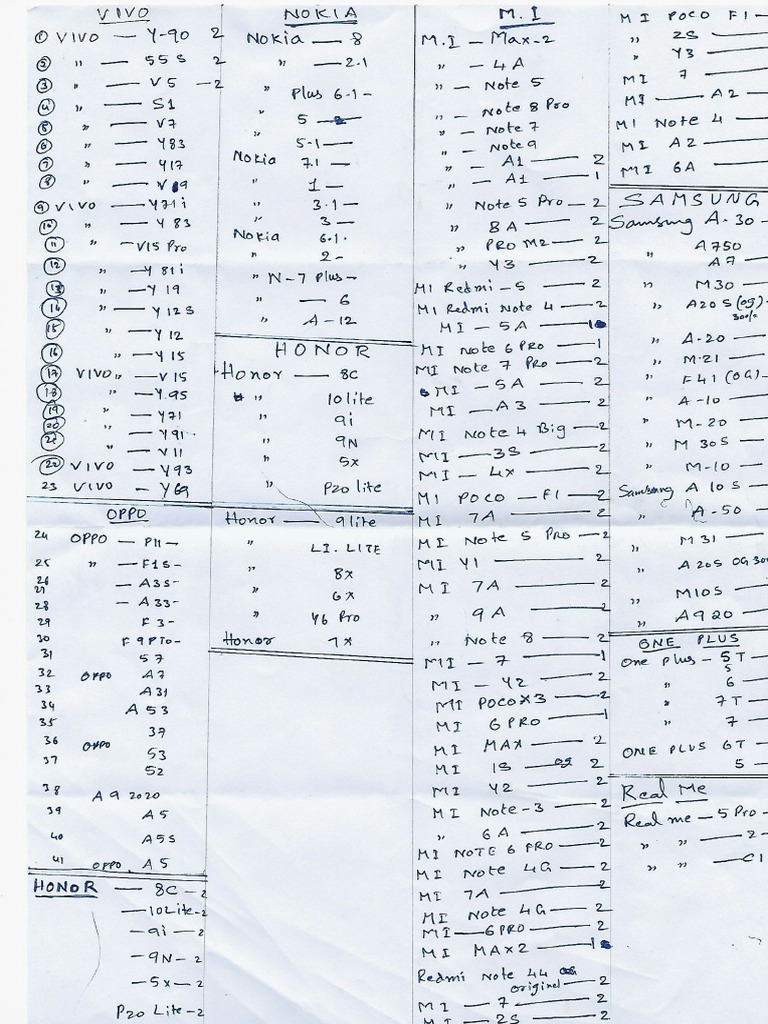 VIVO
① VIVO — Y-90 2
② " — 55 S 2
③ " — V5 — 2
④ " — S1
⑤ " — V7
⑥ " — Y83
⑦ " — Y17
⑧ " — V19
⑨ VIVO — Y71i
⑩ " — Y 83
⑪ " — V15 Pro
⑫ " — Y 81i
⑬ " — Y 19
⑭ " — Y 12S
⑮ " — Y 12
⑯ " — Y 15
⑰ VIVO " — V 15
⑱ " — Y.95
⑲ " — Y71
⑳ " — Y91
㉑ " — V11
㉒ VIVO — Y93
23 VIVO — Y69
OPPO
24 OPPO — P11 —
25 " — F1S -
26 — A3S -
27
28 — A33 -
29 F 3 -
30 F 9 Pro -
31 57
32 OPPO A7
33 A31
34 A 53
35 37
36 OPPO 53
37 52
38 A9 2020
39 A5
40 A5S
41 OPPO A5
HONOR — 8C - 2
— 10Lite - 2
— 9i — 2
— 9N - 2
— 5x — 2
P20 Lite - 2
NOKIA
Nokia — 8
" — 2.1
" Plus 6.1 -
" 5
" 5.1 —
Nokia 7.1 —
" 1 —
" 3.1 —
" 3 —
Nokia 6.1.
" 2 -
" N-7 Plus -
" — 6
" A-12
HONOR
Honor — 8C
" 10 lite
" 9i
" 9N
" 5x
" P20 lite
Honor — 9 lite
" LI. LITE
" 8x
" 6x
" Y6 Pro
Honor 7x
M.I
M.I — Max-2
" — 4A
" — Note 5
" — Note 8 Pro
" — Note 7
" — Note 9
" — A1 — 2
" — A1 — 1
" Note 5 Pro — 2
" 8A — 2
" PRO M2 — 2
" Y3 — 2
MI Redmi - 5 — 2
MI Redmi Note 4 — 2
MI — 5A — 1
MI Note 6 PRO — 1
MI Note 7 Pro — 2
MI — 5A — 2
MI — A3 — 2
MI Note 4 Big — 2
MI — 3S — 2
MI — 4x — 2
MI POCO — F1 — 2
MI 7A — 2
MI Note 5 Pro — 2
MI Y1 — 2
MI 7A — 2
" 9A — 2
" Note 8 — 2
MI — 7 — 1
MI — Y2 — 2
MI POCO X3 — 2
MI 6 PRO — 1
MI MAX — 2
MI 1S — 2
MI Y2 — 2
MI Note-3 — 2
" 6A — 2
MI NOTE 6 PRO — 2
MI Note 4G — 2
MI 7A — 2
MI Note 4G — 2
MI — 6 PRO — 2
MI MAX2 — 1
Redmi Note 44
original — 2
MI — 7 — 2
MI — 2S — 2
MI POCO F1 —
" 2S —
" Y3 —
MI 7 —
MI — A2 —
MI Note 4 —
MI A2 —
MI 6A —
SAMSUNG
Samsung A-30 -
" A750
A7 —
" M30 —
" A20 S (OG) -
300/-
" A-20 —
" M-21 —
" F41 (OG) -
" A-10 —
" M-20 —
" M 30S —
" M-10 —
Samsung A 10 S —
" A-50 —
" M 31 —
" A20S OG 300
" M10S —
" A920 —
ONE PLUS
One plus — 5T —
5
" 6 —
" 7T —
" 7 —
ONE PLUS 6T —
5 —
Real Me
Real me — 5 Pro -
" " — 2 -
" " — C1